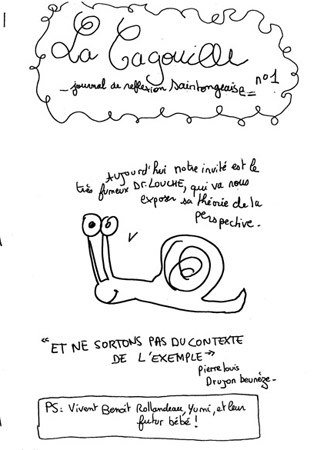 La Cagouille
_ journal de reflexion saintongeaise = n°1
Aujourd'hui notre invité est le
très fumeux Dr. LOUCHE, qui va nous
exposer sa théorie de la
perspective.
"ET NE SORTONS PAS DU CONTEXTE
DE L'EXEMPLE"
Pierre louis
Druzon
PS: Vivent Benoit Rollandeau, Yumi, et leur
futur bébé !